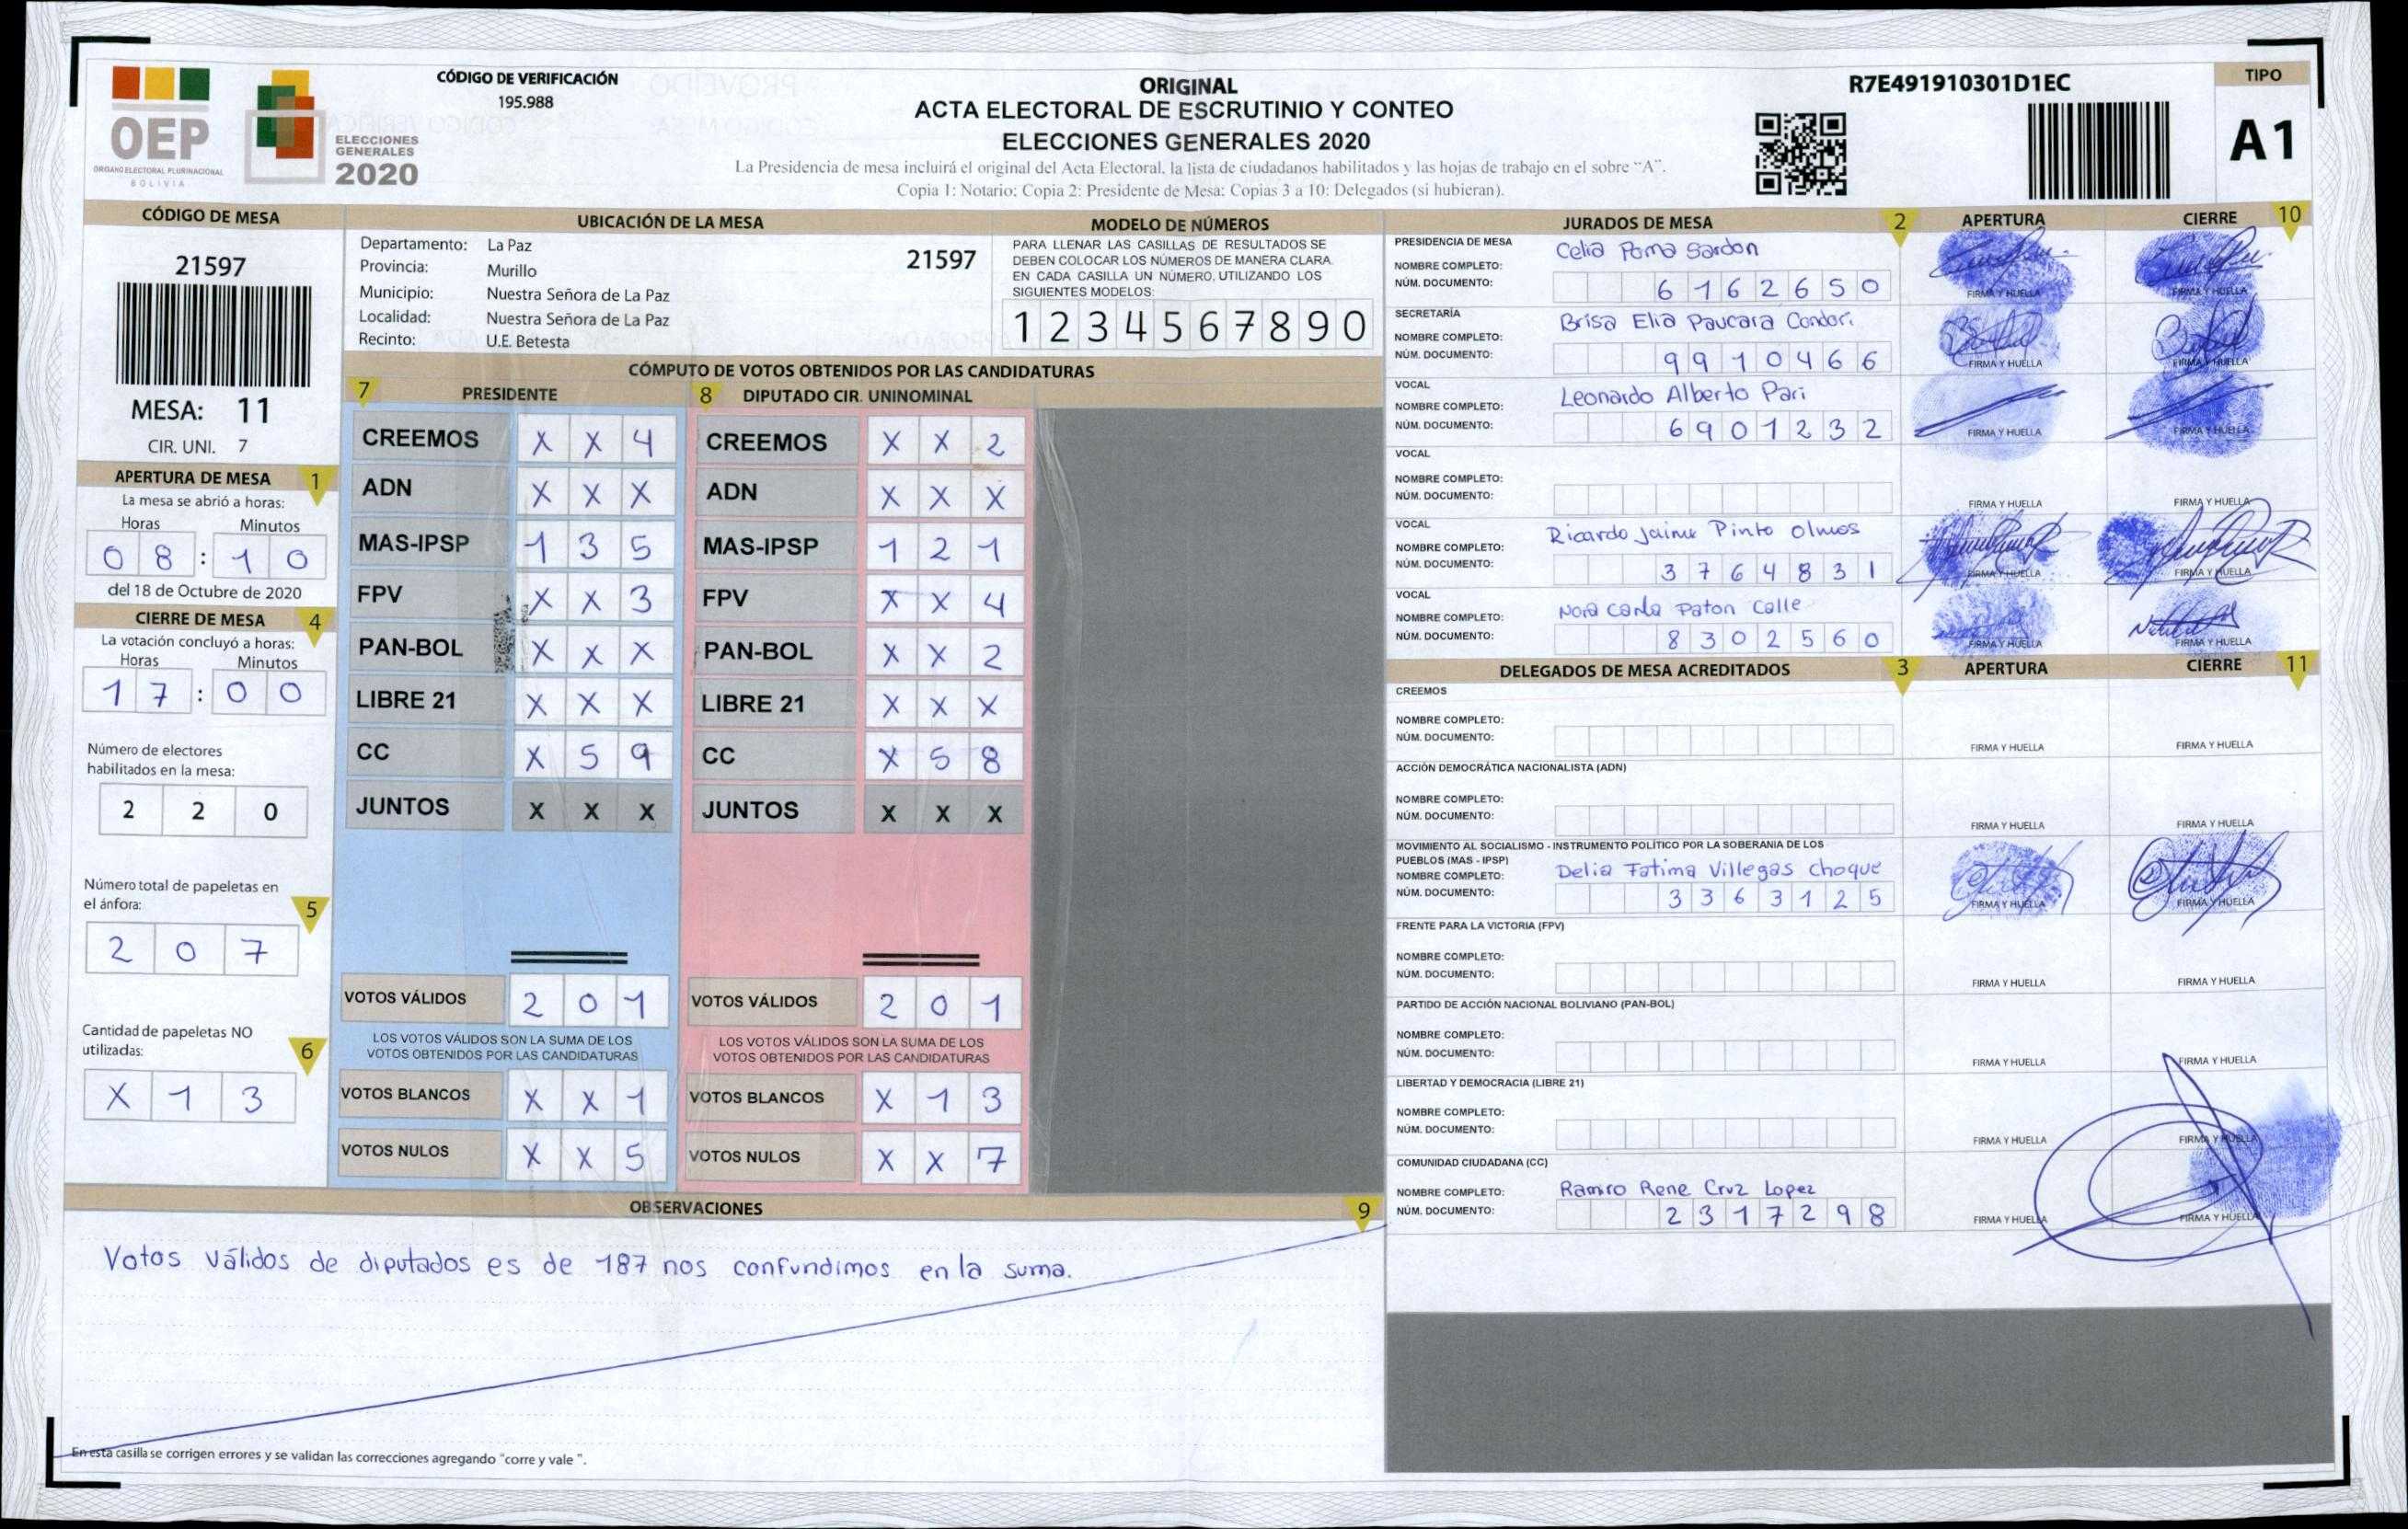 OEP
ÓRGANO ELECTORAL PLURINACIONAL
BOLIVIA
ELECCIONES
GENERALES
2020
CÓDIGO DE VERIFICACIÓN
195.988
ORIGINAL
ACTA ELECTORAL DE ESCRUTINIO Y CONTEO
ELECCIONES GENERALES 2020
La Presidencia de mesa incluirá el original del Acta Electoral, la lista de ciudadanos habilitados y las hojas de trabajo en el sobre "A".
Copia 1: Notario; Copia 2: Presidente de Mesa; Copias 3 a 10: Delegados (si hubieran).
R7E491910301D1EC
TIPO
A1
CÓDIGO DE MESA
21597
MESA: 11
CIR. UNI. 7
APERTURA DE MESA 1
La mesa se abrió a horas:
Horas Minutos
0 8 : 1 0
del 18 de Octubre de 2020
CIERRE DE MESA 4
La votación concluyó a horas:
Horas Minutos
1 7 : 0 0
Número de electores
habilitados en la mesa:
2 2 0
Número total de papeletas en
el ánfora: 5
2 0 7
Cantidad de papeletas NO
utilizadas: 6
X 1 3
UBICACIÓN DE LA MESA
Departamento: La Paz 21597
Provincia: Murillo
Municipio: Nuestra Señora de La Paz
Localidad: Nuestra Señora de La Paz
Recinto: U.E. Betesta
MODELO DE NÚMEROS
PARA LLENAR LAS CASILLAS DE RESULTADOS SE
DEBEN COLOCAR LOS NÚMEROS DE MANERA CLARA.
EN CADA CASILLA UN NÚMERO, UTILIZANDO LOS
SIGUIENTES MODELOS:
1 2 3 4 5 6 7 8 9 0
CÓMPUTO DE VOTOS OBTENIDOS POR LAS CANDIDATURAS
7 PRESIDENTE
CREEMOS X X 4
ADN X X X
MAS-IPSP 1 3 5
FPV X X 3
PAN-BOL X X X
LIBRE 21 X X X
CC X 5 9
JUNTOS X X X
VOTOS VÁLIDOS 2 0 1
LOS VOTOS VÁLIDOS SON LA SUMA DE LOS
VOTOS OBTENIDOS POR LAS CANDIDATURAS
VOTOS BLANCOS X X 1
VOTOS NULOS X X 5
8 DIPUTADO CIR. UNINOMINAL
CREEMOS X X 2
ADN X X X
MAS-IPSP 1 2 1
FPV X X 4
PAN-BOL X X 2
LIBRE 21 X X X
CC X 5 8
JUNTOS X X X
VOTOS VÁLIDOS 2 0 1
LOS VOTOS VÁLIDOS SON LA SUMA DE LOS
VOTOS OBTENIDOS POR LAS CANDIDATURAS
VOTOS BLANCOS X 1 3
VOTOS NULOS X X 7
OBSERVACIONES 9
Votos válidos de diputados es de 187 nos confundimos en la suma.
En esta casilla se corrigen errores y se validan las correcciones agregando "corre y vale ".
JURADOS DE MESA 2 APERTURA CIERRE 10
PRESIDENCIA DE MESA
NOMBRE COMPLETO: Celia Poma Sardon
NÚM. DOCUMENTO: 6 1 6 2 6 5 0
FIRMA Y HUELLA FIRMA Y HUELLA
SECRETARÍA
NOMBRE COMPLETO: Brisa Elia Paucara Condori
NÚM. DOCUMENTO: 9 9 1 0 4 6 6
FIRMA Y HUELLA FIRMA Y HUELLA
VOCAL
NOMBRE COMPLETO: Leonardo Alberto Pari
NÚM. DOCUMENTO: 6 9 0 1 2 3 2
FIRMA Y HUELLA FIRMA Y HUELLA
VOCAL
NOMBRE COMPLETO:
NÚM. DOCUMENTO:
FIRMA Y HUELLA FIRMA Y HUELLA
VOCAL
NOMBRE COMPLETO: Ricardo Jaime Pinto Olmos
NÚM. DOCUMENTO: 3 7 6 4 8 3 1
FIRMA Y HUELLA FIRMA Y HUELLA
VOCAL
NOMBRE COMPLETO: Nora Carla Paton Calle
NÚM. DOCUMENTO: 8 3 0 2 5 6 0
FIRMA Y HUELLA FIRMA Y HUELLA
DELEGADOS DE MESA ACREDITADOS 3 APERTURA CIERRE 11
CREEMOS
NOMBRE COMPLETO:
NÚM. DOCUMENTO:
FIRMA Y HUELLA FIRMA Y HUELLA
ACCIÓN DEMOCRÁTICA NACIONALISTA (ADN)
NOMBRE COMPLETO:
NÚM. DOCUMENTO:
FIRMA Y HUELLA FIRMA Y HUELLA
MOVIMIENTO AL SOCIALISMO - INSTRUMENTO POLÍTICO POR LA SOBERANIA DE LOS
PUEBLOS (MAS - IPSP)
NOMBRE COMPLETO: Delia Fatima Villegas Choque
NÚM. DOCUMENTO: 3 3 6 3 1 2 5
FIRMA Y HUELLA FIRMA Y HUELLA
FRENTE PARA LA VICTORIA (FPV)
NOMBRE COMPLETO:
NÚM. DOCUMENTO:
FIRMA Y HUELLA FIRMA Y HUELLA
PARTIDO DE ACCIÓN NACIONAL BOLIVIANO (PAN-BOL)
NOMBRE COMPLETO:
NÚM. DOCUMENTO:
FIRMA Y HUELLA FIRMA Y HUELLA
LIBERTAD Y DEMOCRACIA (LIBRE 21)
NOMBRE COMPLETO:
NÚM. DOCUMENTO:
FIRMA Y HUELLA FIRMA Y HUELLA
COMUNIDAD CIUDADANA (CC)
NOMBRE COMPLETO: Ramiro Rene Cruz Lopez
NÚM. DOCUMENTO: 2 3 1 7 2 9 8
FIRMA Y HUELLA FIRMA Y HUELLA